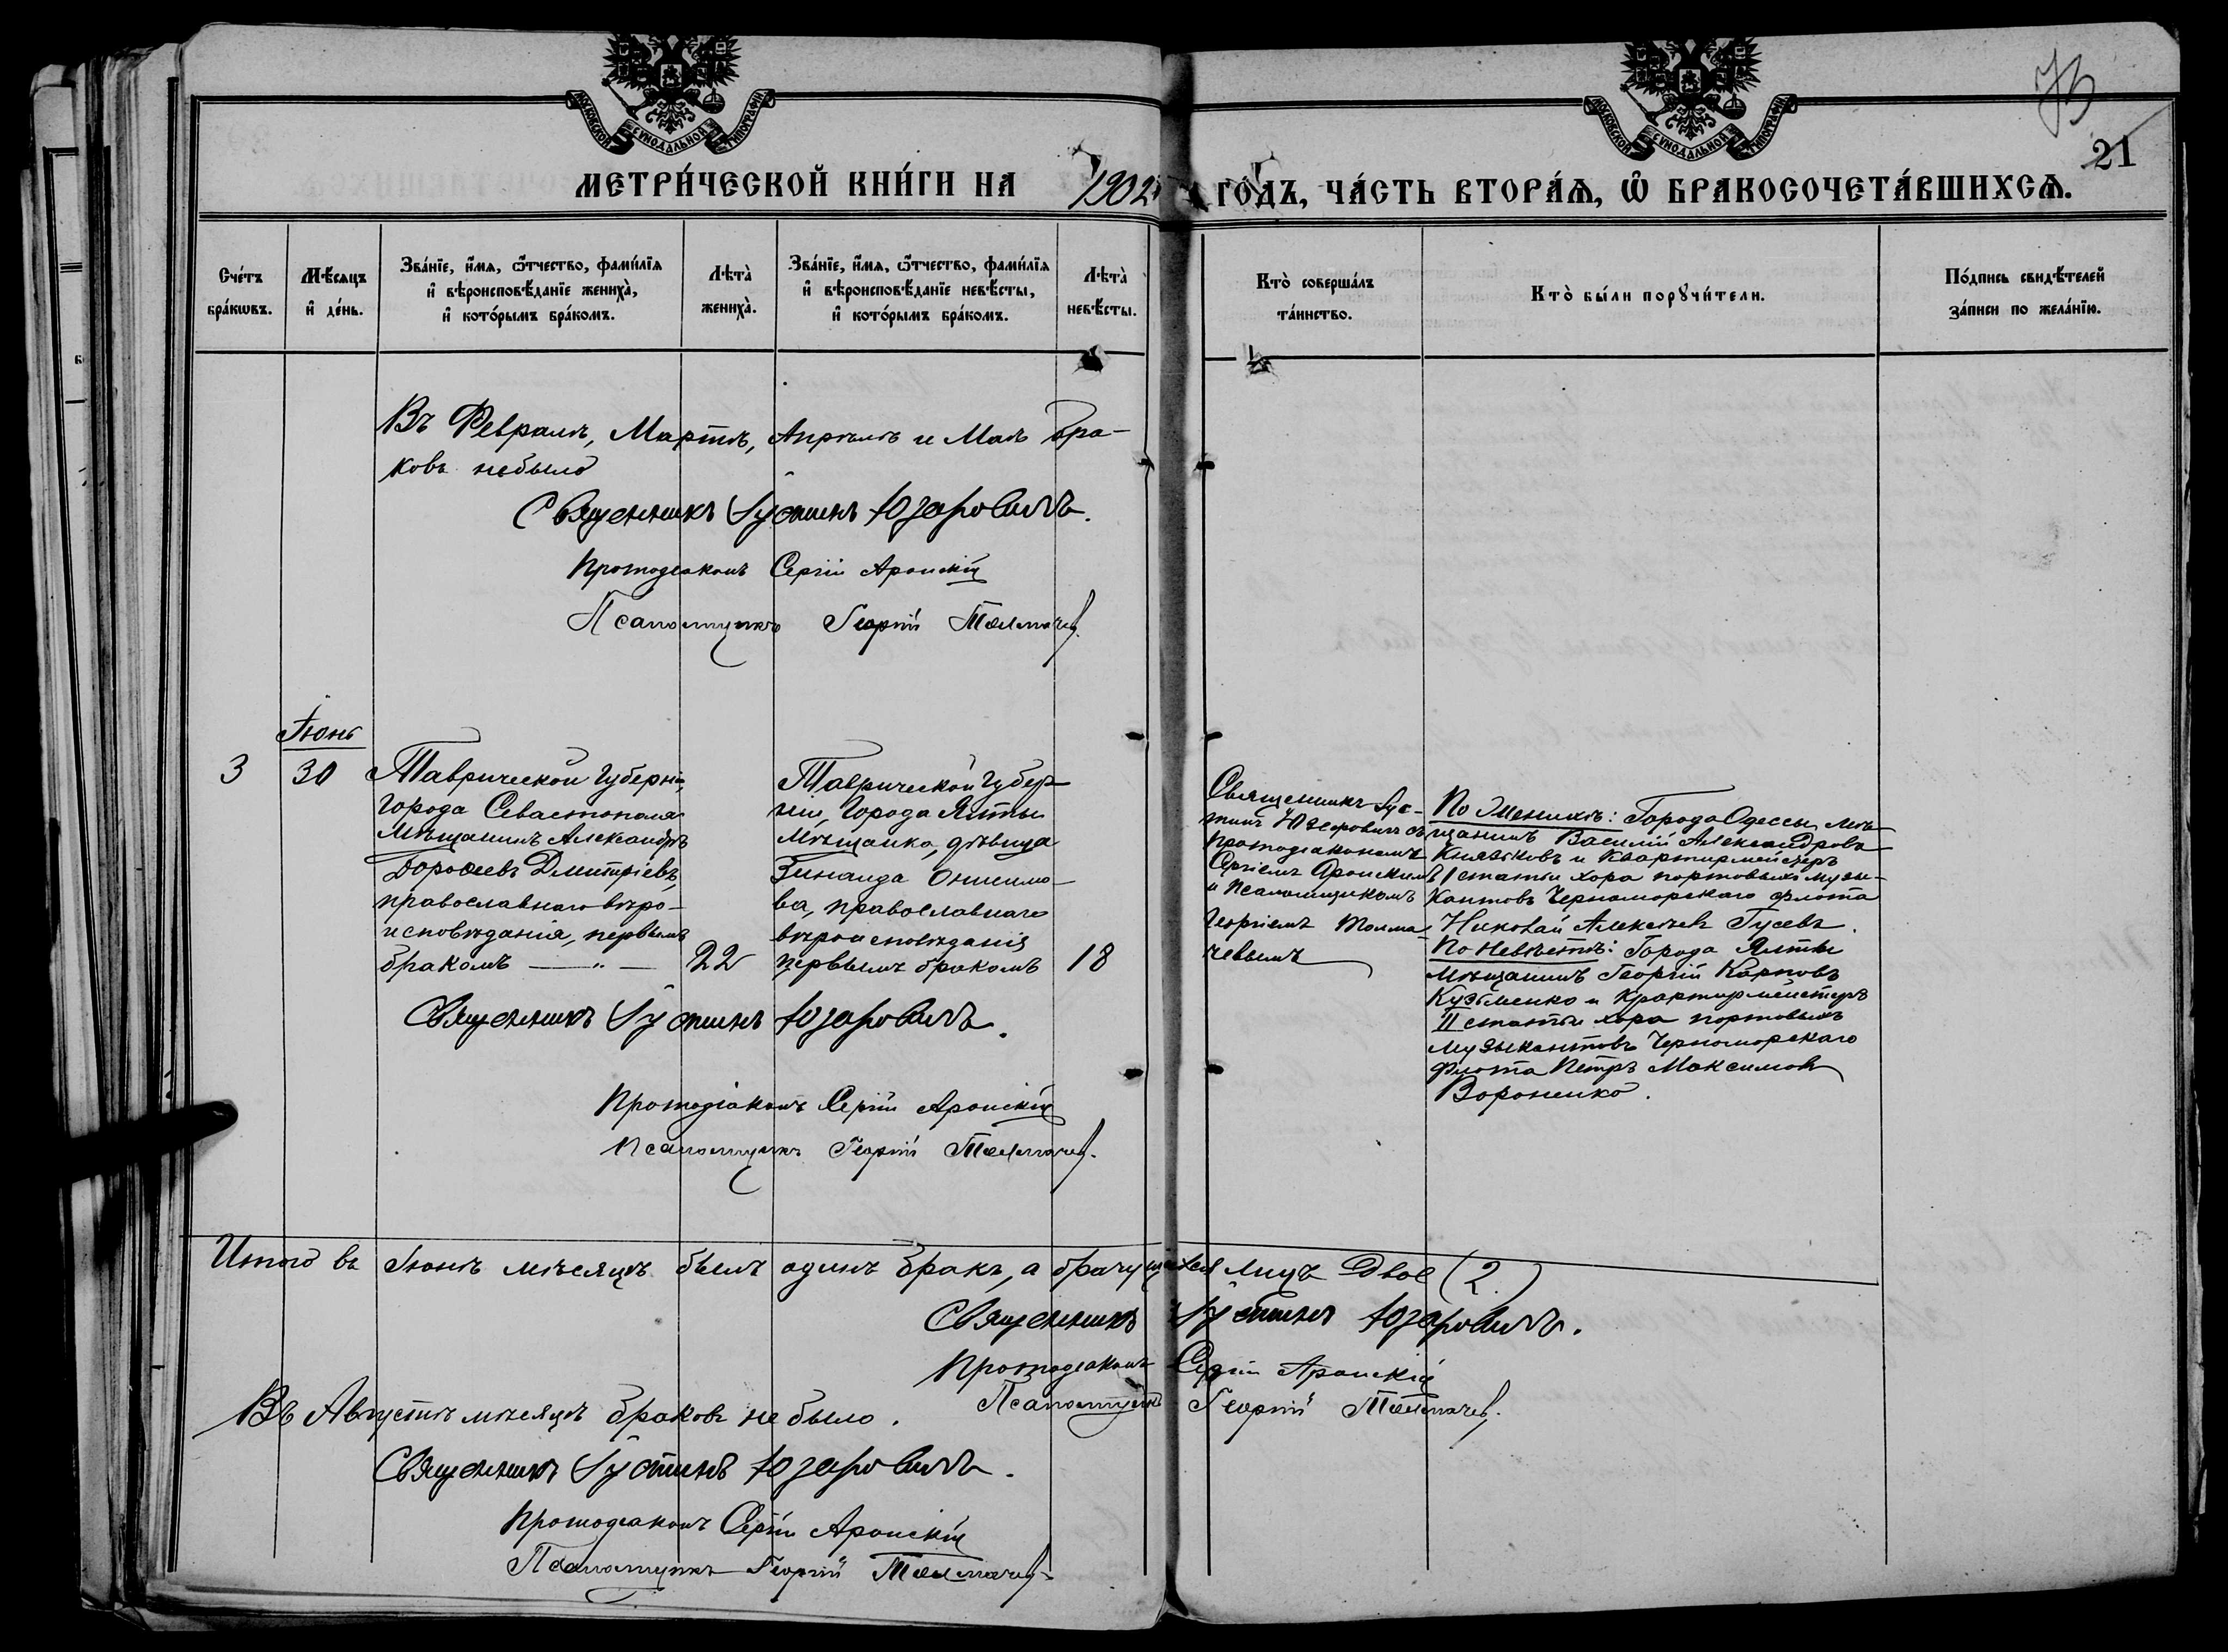 МОСКОВСКОЙ СѴНОДАЛЬНОЙ ТИПОГРАФИИ
МОСКОВСКОЙ СѴНОДАЛЬНОЙ ТИПОГРАФИИ
21
МЕТРИ́ЧЕСКОЙ КНИ́ГИ НА 1902 ГО́ДЪ, ЧА́СТЬ ВТОРА́Ѧ, Ѿ БРАКОСОЧЕТА́ВШИХСѦ.
Сче́тъ бра́кѡвъ.
Мѣ́сѧцъ и҆ де́нь.
Зва́нїе, и҆́мѧ, ѻ҆́тчество, фами́лїѧ
и҆ вѣроисповѣ́данїе жениха̀,
и҆ кото́рымъ бра́комъ.
Лѣта̀ жениха̀.
Зва́нїе, и҆́мѧ, ѻ҆́тчество, фами́лїѧ
и҆ вѣроисповѣ́данїе невѣ́сты,
и҆ кото́рымъ бра́комъ.
Лѣта̀ невѣ́сты.
Кто̀ соверша́лъ та́инство.
Кто̀ бы́ли порꙋчи́тели.
По́дпись свидѣ́телей
за́писи по жела́нїю.
Въ Февралѣ, Мартѣ, Апрѣлѣ и Маѣ бра-
ковъ небыло
Священникъ Іустинъ Юзефовичъ.
Протодіаконъ Сергій Аронскій
Псаломщикъ Георгій Толмачев.
Іюнь
3
30
Таврической Губерніи,
города Севастополя
Мѣщанинъ Александръ
Дорофеевъ Дмитріевъ,
православнаго вѣро-
исповѣданія, первымъ
бракомъ — „ —
22
Таврической Губер-
ніи, города Ялты
Мѣщанка, дѣвица
Зинаида Онисимо-
ва, православнаго
вѣроисповѣданія
первымъ бракомъ
18
Священникъ Іус-
тинъ Юзефовичъ съ
протодіакономъ
Сергіемъ Аронскимъ
и псаломщикомъ
Георгіемъ Толма-
чевымъ
По Женихѣ: Города Одессы мѣ-
щанинъ Василій Александровъ
Князьковъ и Квартирмейстеръ
I статьи хора портовыхъ музы-
кантовъ Черноморскаго флота
Николай Алексѣевъ Гусевъ.
По Невѣстѣ: Города Ялты
мѣщанинъ Георгій Карповъ
Кузьменко и Квартирмейстеръ
II статьи хора портовыхъ
музыкантовъ Черноморскаго
флота Петръ Максимовъ
Вороненко.
Священникъ Іустинъ Юзефовичъ.
Протодіаконъ Сергій Аронскій
Псаломщикъ Георгій Толмачев.
Итого въ Іюнѣ мѣсяцѣ былъ одинъ бракъ, а брачущихся лицъ двое (2)
Священникъ Іустинъ Юзефовичъ.
Протодіаконъ Сергій Аронскій
Псаломщикъ Георгій Толмачев.
Въ Августѣ мѣсяцѣ браковъ не было.
Священникъ Іустинъ Юзефовичъ.
Протодіаконъ Сергій Аронскій
Псаломщикъ Георгій Толмачев